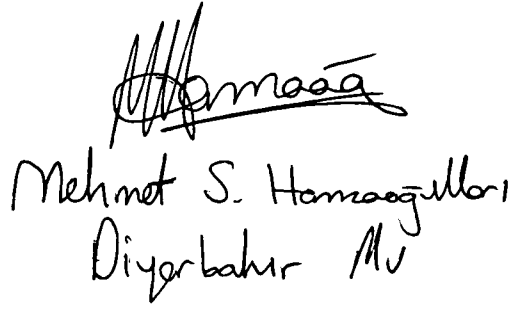 MHamzaoğ
Mehmet S. Hamzaoğulları
Diyarbakır Mv